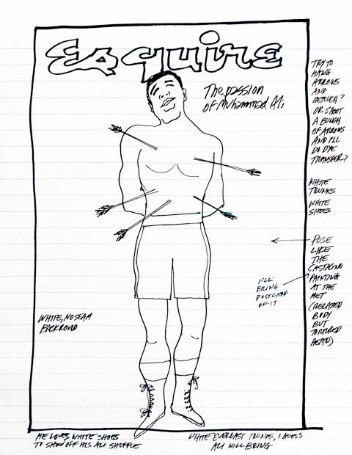 Esquire
The passion
of Muhammad Ali
TRY TO
HANG
ARROWS
AND
RETOUCH?
OR SHOOT
A BUNCH
OF ARROWS
AND I'LL
DO DYE
TRANSFER?
WHITE
TRUNKS
WHITE
SHOES
POSE
LIKE
THE
CASTAGNO
PAINTING
AT THE
MET
(RELAXED
BODY
BUT
TORTURED
HEAD)
I'LL
BRING
POSTCARD
OF IT
WHITE, NO SEAM
BACKROUND
HE LOVES WHITE SHOES
TO SHOW OFF HIS ALI SHUFFLE
WHITE EVERLAST TRUNKS, I GUESS
ALI WILL BRING